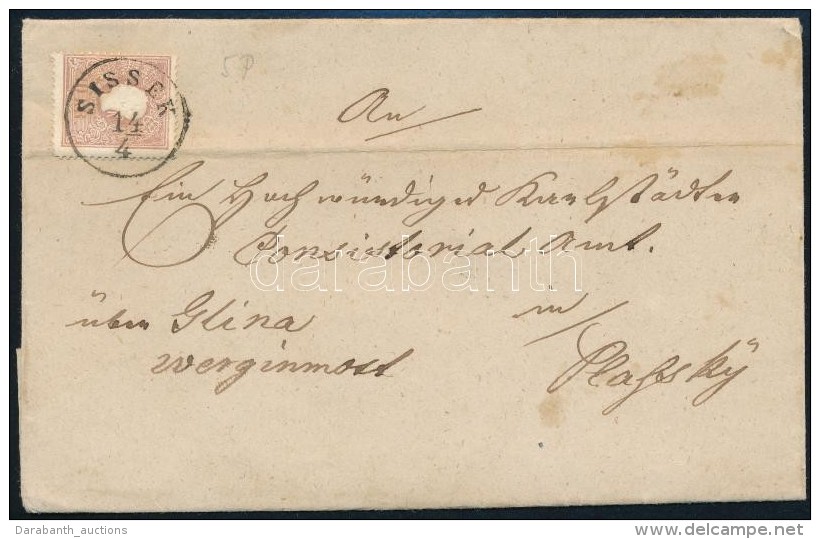 SISSEK
14
4
5P
An
Ein Hochwürdiges Karlstädter
Consistorial Amt.
über Glina
werginmost
in
Plaschky
darabanth
Darabanth_auctions
www.delcampe.net